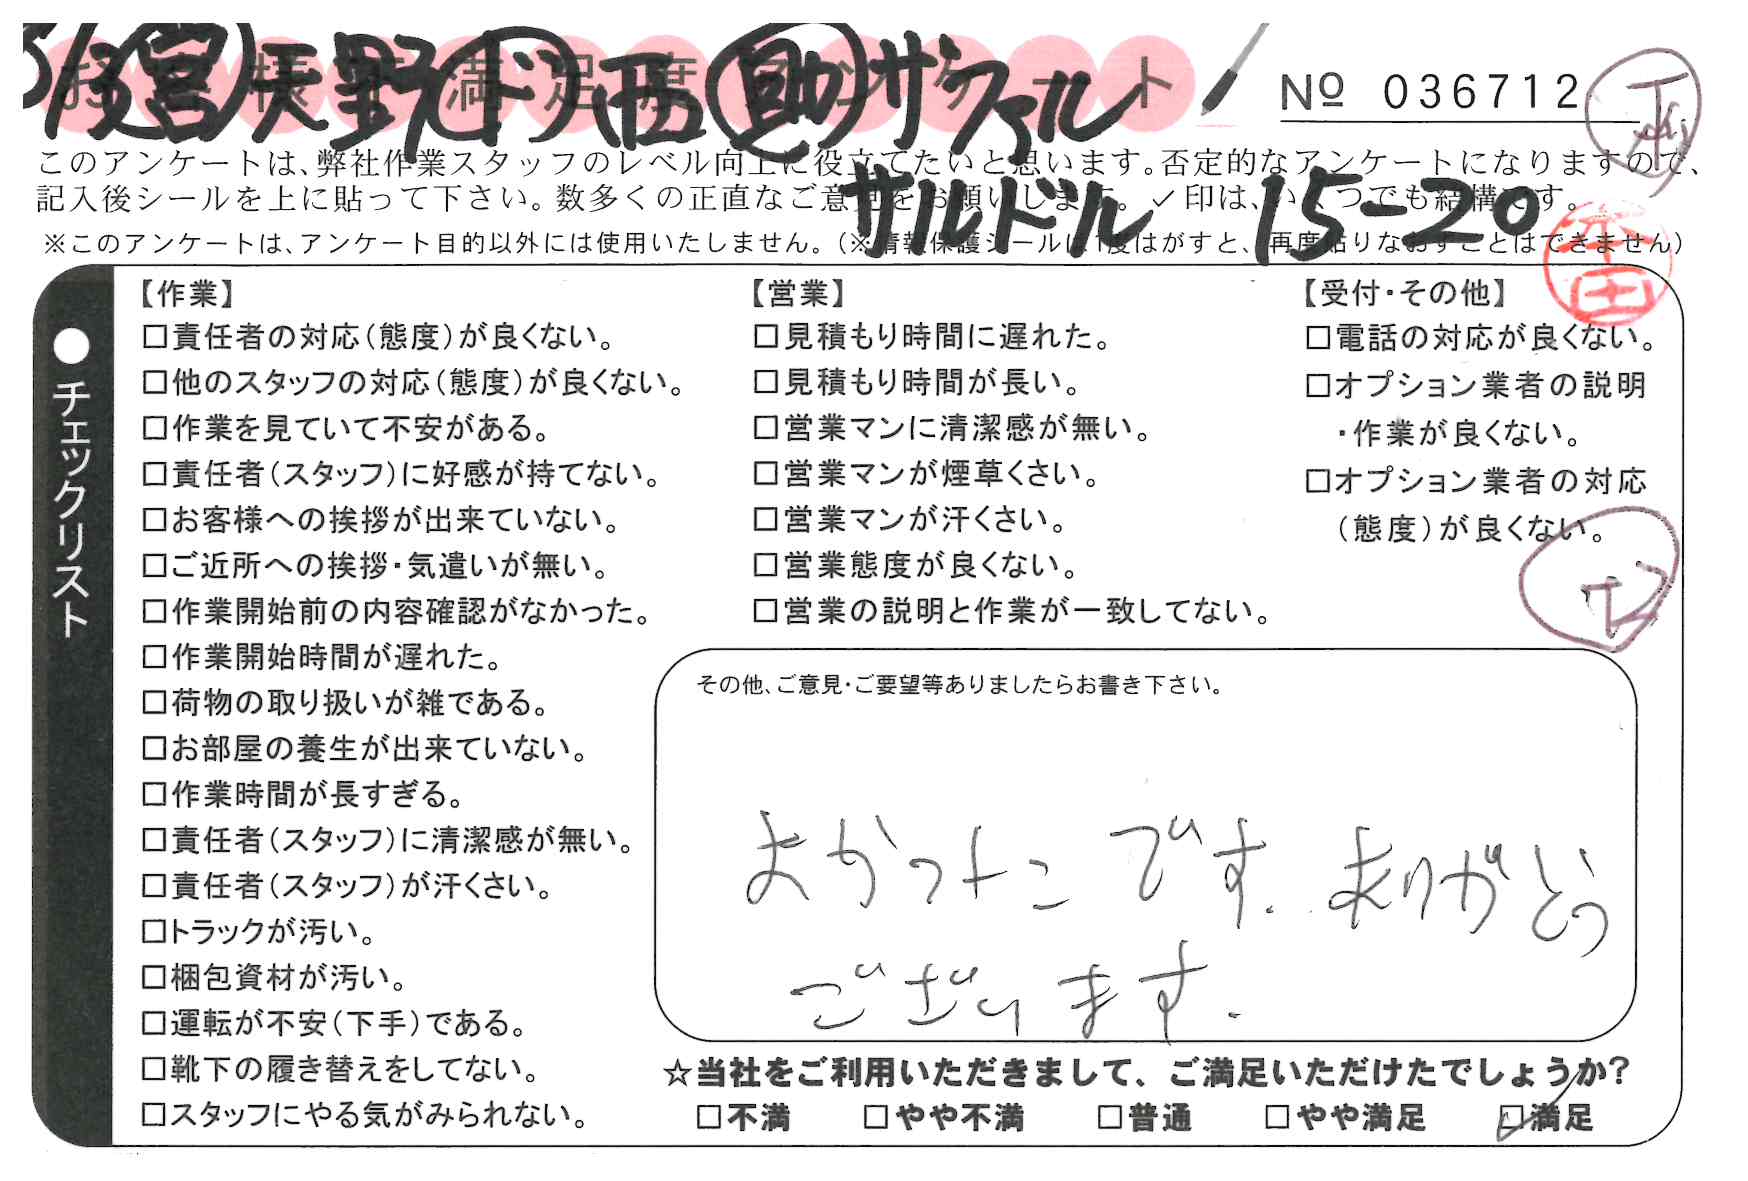 お客様満足度アンケート
宮 矢野 ド 西 助 ザファル
№ 036712
このアンケートは、弊社作業スタッフのレベル向上に役立てたいと思います。否定的なアンケートになりますので、
記入後シールを上に貼って下さい。数多くの正直なご意見をお願いします。✓印は、いくつでも結構です。
サルドル 15-20
※このアンケートは、アンケート目的以外には使用いたしません。（※情報保護シールは1度はがすと、再度貼りなおすことはできません）
●チェックリスト
【作業】
□責任者の対応（態度）が良くない。
□他のスタッフの対応（態度）が良くない。
□作業を見ていて不安がある。
□責任者（スタッフ）に好感が持てない。
□お客様への挨拶が出来ていない。
□ご近所への挨拶・気遣いが無い。
□作業開始前の内容確認がなかった。
□作業開始時間が遅れた。
□荷物の取り扱いが雑である。
□お部屋の養生が出来ていない。
□作業時間が長すぎる。
□責任者（スタッフ）に清潔感が無い。
□責任者（スタッフ）が汗くさい。
□トラックが汚い。
□梱包資材が汚い。
□運転が不安（下手）である。
□靴下の履き替えをしてない。
□スタッフにやる気がみられない。
【営業】
□見積もり時間に遅れた。
□見積もり時間が長い。
□営業マンに清潔感が無い。
□営業マンが煙草くさい。
□営業マンが汗くさい。
□営業態度が良くない。
□営業の説明と作業が一致してない。
【受付・その他】
□電話の対応が良くない。
□オプション業者の説明
・作業が良くない。
□オプション業者の対応
（態度）が良くない。
その他、ご意見・ご要望等ありましたらお書き下さい。
よかったこです。ありがとう
ございます。
☆当社をご利用いただきまして、ご満足いただけたでしょうか？
□不満 □やや不満 □普通 □やや満足 ☑満足